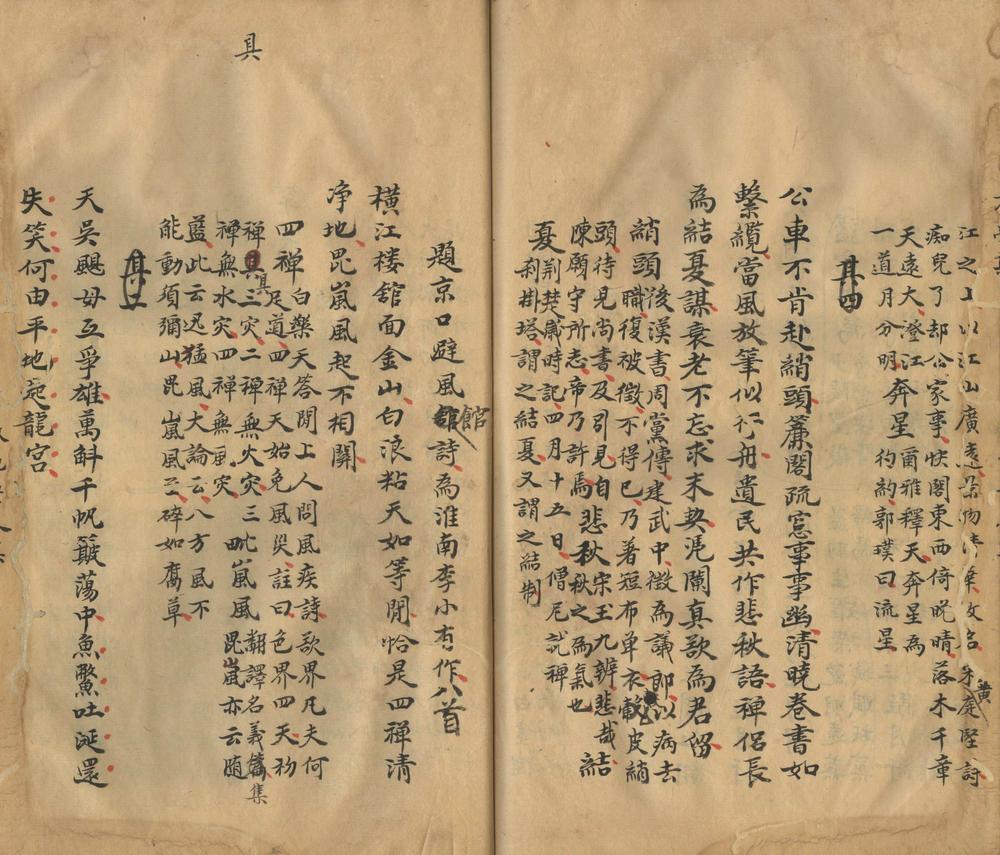 江之上以江山廣遠景物清華故名朱黃庭堅詩
痴兒了却公家事快閣東西倚晚晴落木千章
天遠大澄江 奔星 爾雅釋天奔星為
一道月分明 彴約郭璞曰流星
其四
公車不肯赴綃頭簾閣疏窓事事幽清曉卷書如
繫纜當風放筆似行舟遺民共作悲秋語禪侶長
為結夏謀衰老不忘求末契凴闌真欲為君留
綃頭 後漢書周黨傳建武中徵為議郎以病去
職復被徵不得已乃著短布单衣榖皮綃
頭待見尚書及引見自
陳願守所志帝乃許焉 悲秋 宋玉九辨悲哉
秋之為氣也 結
夏 荆楚歲時記四月十五日僧尼就禪
刹掛塔謂之結夏又謂之結制
題京口避風館詩為淮南李小有作八首
橫江楼舘面金山白浪粘天如等閒恰是四禪清
净地毘嵐風起不相關
四禪 白樂天答閒上人問風疾詩欲界凡夫何
足道四禪天始免風災註曰色界四天初
禪具三灾二禪無火灾三
禪無水灾四禪無風灾 毗嵐風 翻譯名義集
毘嵐亦云隨
藍此云迅猛風大論云八方風不
能動須彌山毘嵐風至碎如腐草
具
其二
天吳颶母互爭雄萬斛千帆簸蕩中魚鱉吐涎還
失笑何由平地起龍宮